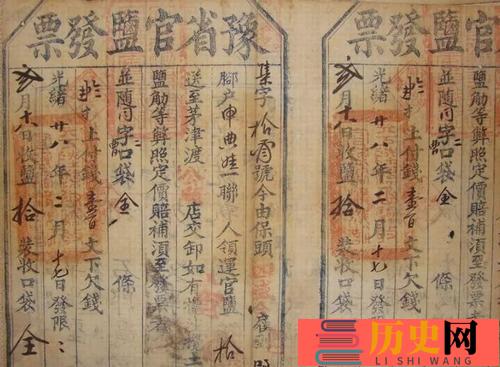 官鹽發票
鹽觔等弊照定價賠補須至發票
並隨 字口袋全 條
上付錢壹百文下欠錢
光緒廿八年二月十七日發限
月十八日收鹽拾 裝收口袋
豫省官鹽發票
集字拾 號今由保頭
腳户申典娃一聯 人領運官鹽 拾
送至茅津渡 店交卸如有 土
鹽觔等弊照定價賠補須至發票者
並隨 字口袋全 條
上付錢壹百文下欠錢
光緒廿八年二月十七日發限
月十八日收鹽拾 裝收口袋全
历史网
LI SHI WANG